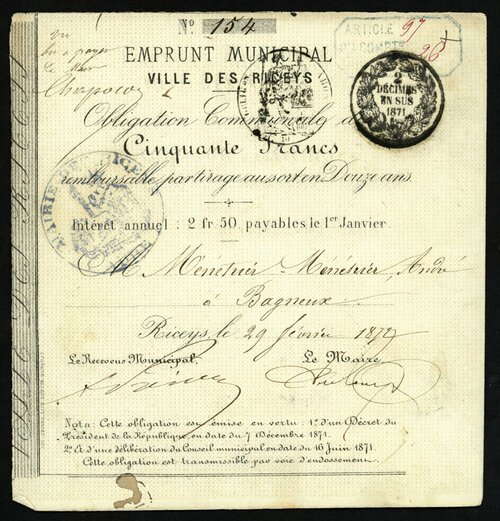 Nº 154
EMPRUNT MUNICIPAL
VILLE DES RICEYS
ARTICLE 97
DU COMPTE 96
vu
bon à payer
Le Maire
2
DÉCIMES
EN SUS
1871
Obligation Communale de
Cinquante Francs
remboursable par tirage au sort en Douze ans.
MAIRIE DES RICEYS
AUBE
Intérêt annuel : 2 fr 50, payables le 1er Janvier.
M. Ménétrier-Ménétrier, André
à Bagneux
Riceys le 29 février 1872
Le Receveur Municipal,
Le Maire,
Nota : Cette obligation est émise en vertu : 1º d'un Décret du
Président de la République, en date du 7 Décembre 1871.
2º Et d'une délibération du Conseil municipal en date du 16 Juin 1871.
Cette obligation est transmissible par voie d'endossement.